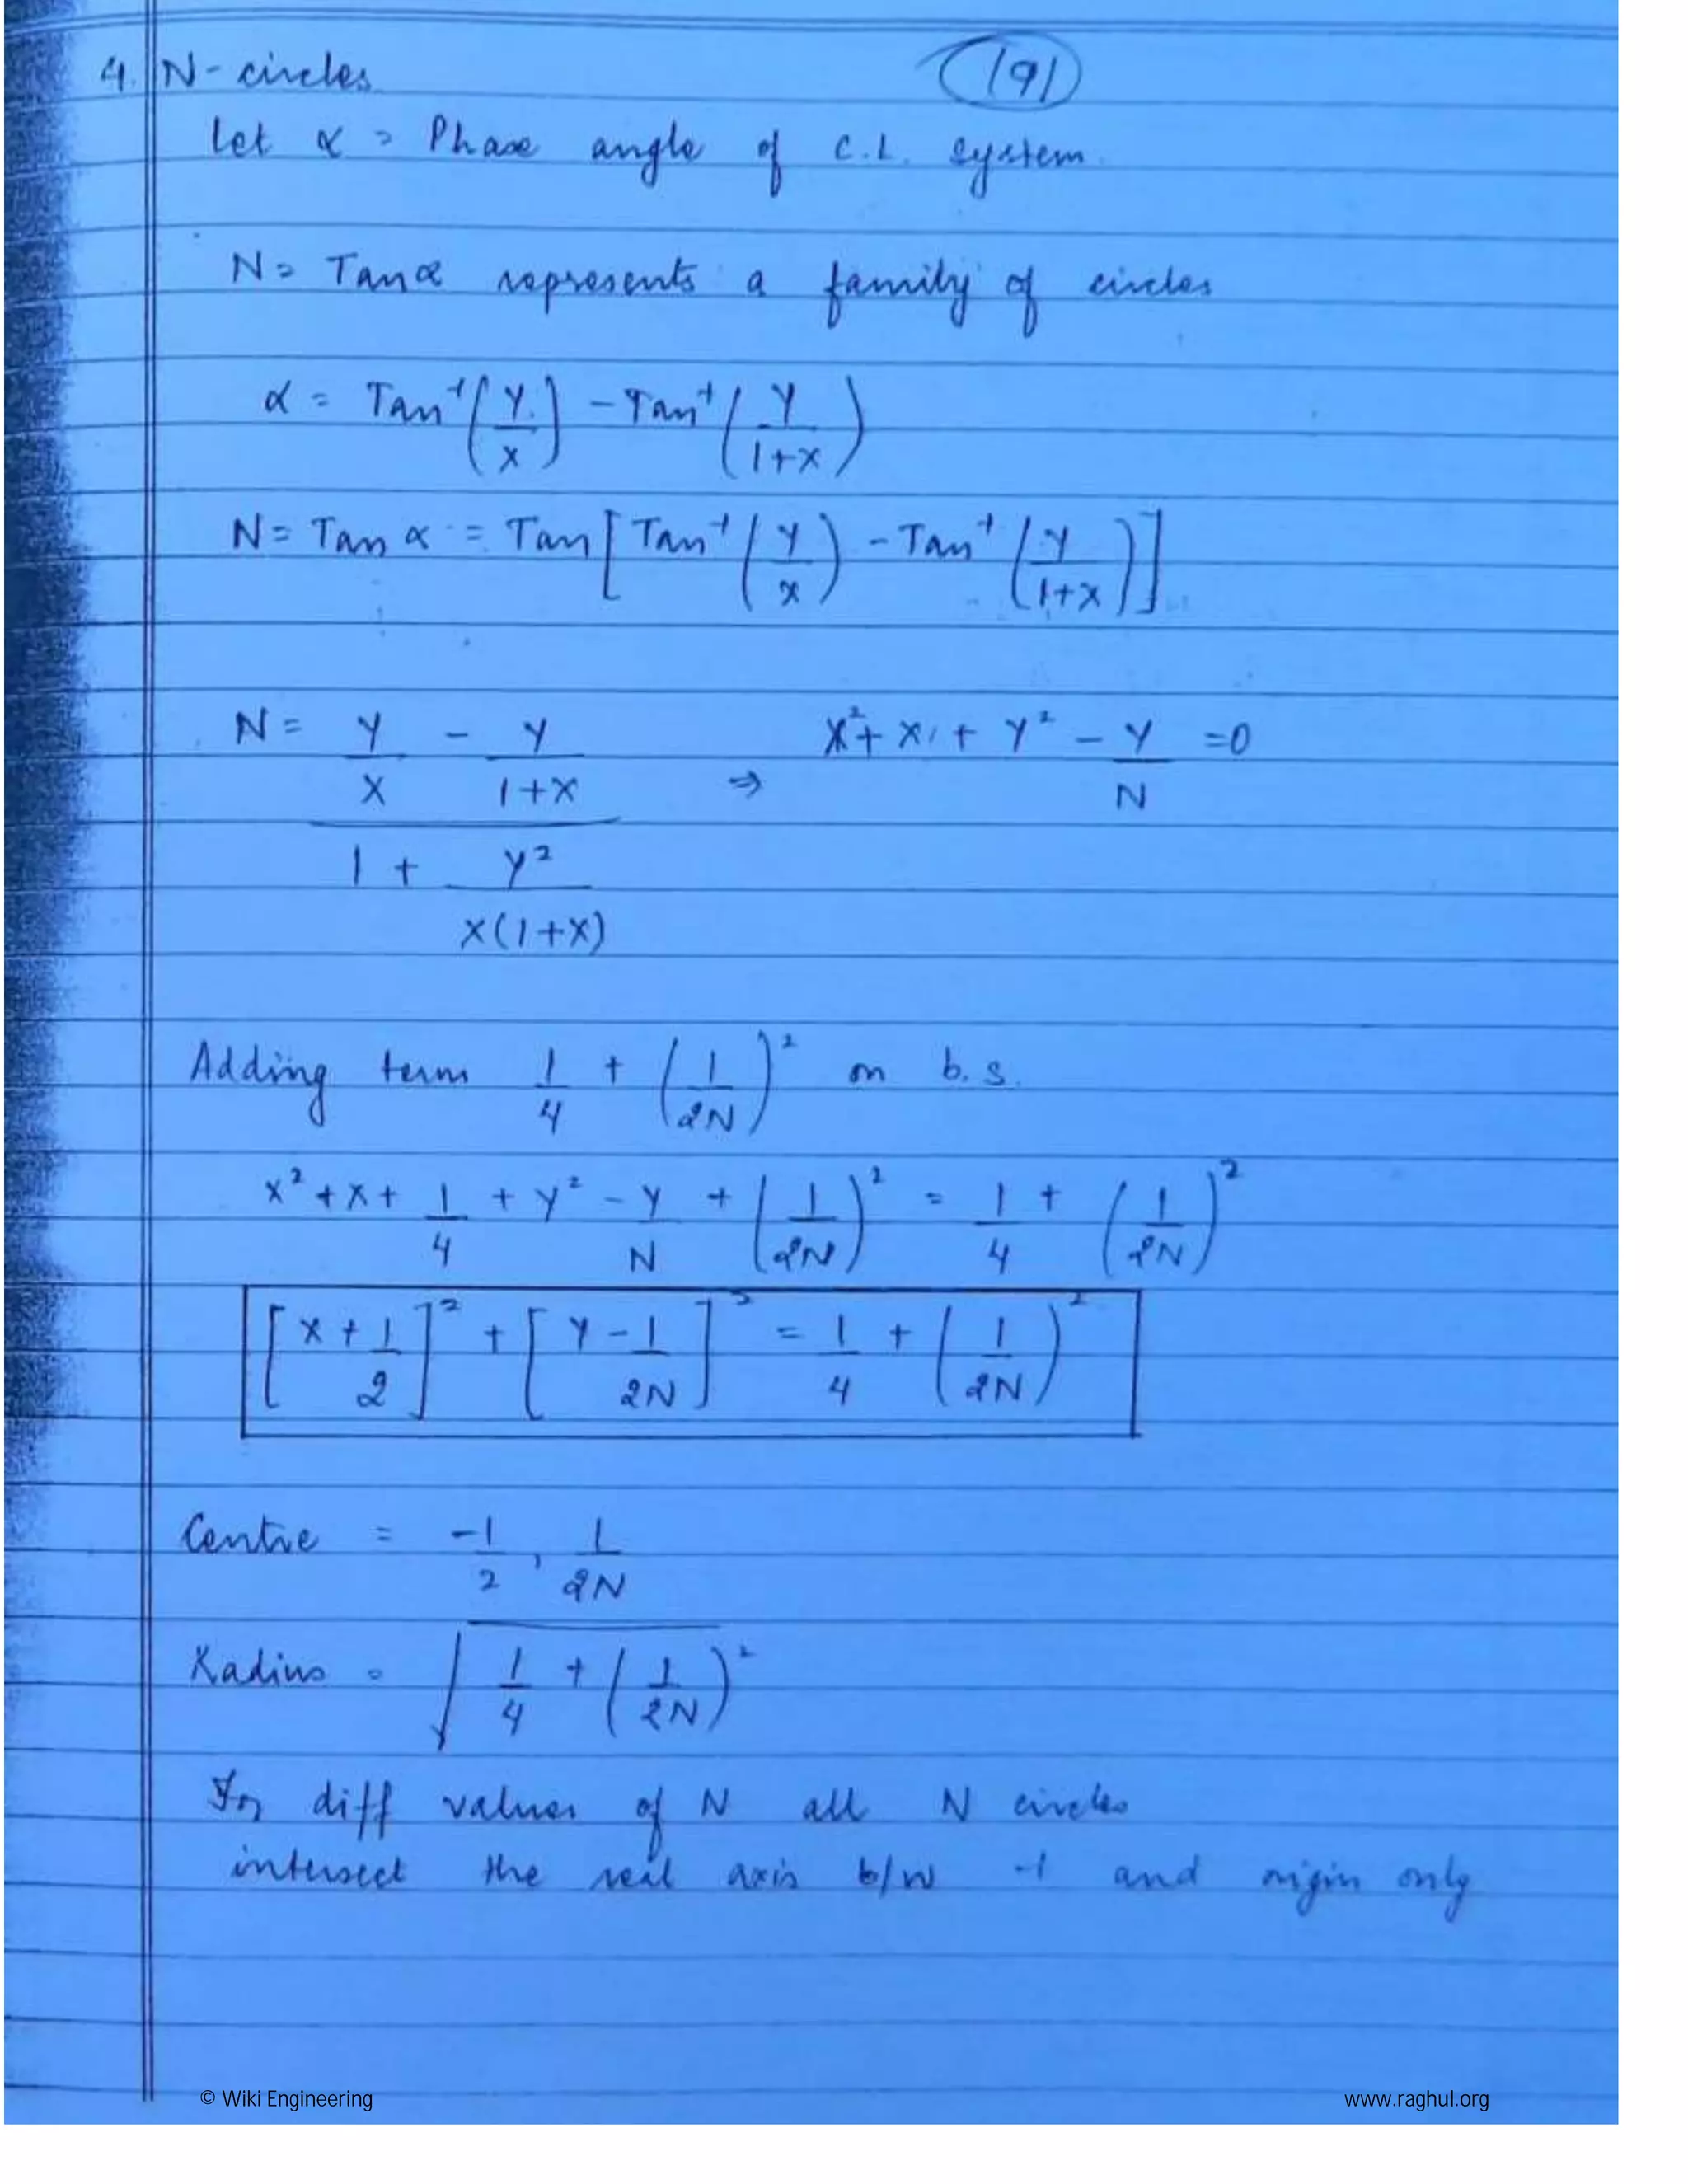 4. N-circles (191)
Let α = Phase angle of C.L. system.
N = Tan α represents a family of circles
α = Tan⁻¹(y/x) - Tan⁻¹(y/(1+x))
N = Tan α = Tan[Tan⁻¹(y/x) - Tan⁻¹(y/(1+x))]
N = (y/x - y/(1+x)) / (1 + y²/(x(1+x))) ⇒ x² + x + y² - y/N = 0
Adding term 1/4 + (1/2N)² on b.s.
x² + x + 1/4 + y² - y/N + (1/2N)² = 1/4 + (1/2N)²
[x + 1/2]² + [y - 1/2N]² = 1/4 + (1/2N)²
Centre = -1/2, 1/2N
Radius = √(1/4 + (1/2N)²)
For diff values of N all N circles
intersect the real axis b/w -1 and origin only
© Wiki Engineering www.raghul.org